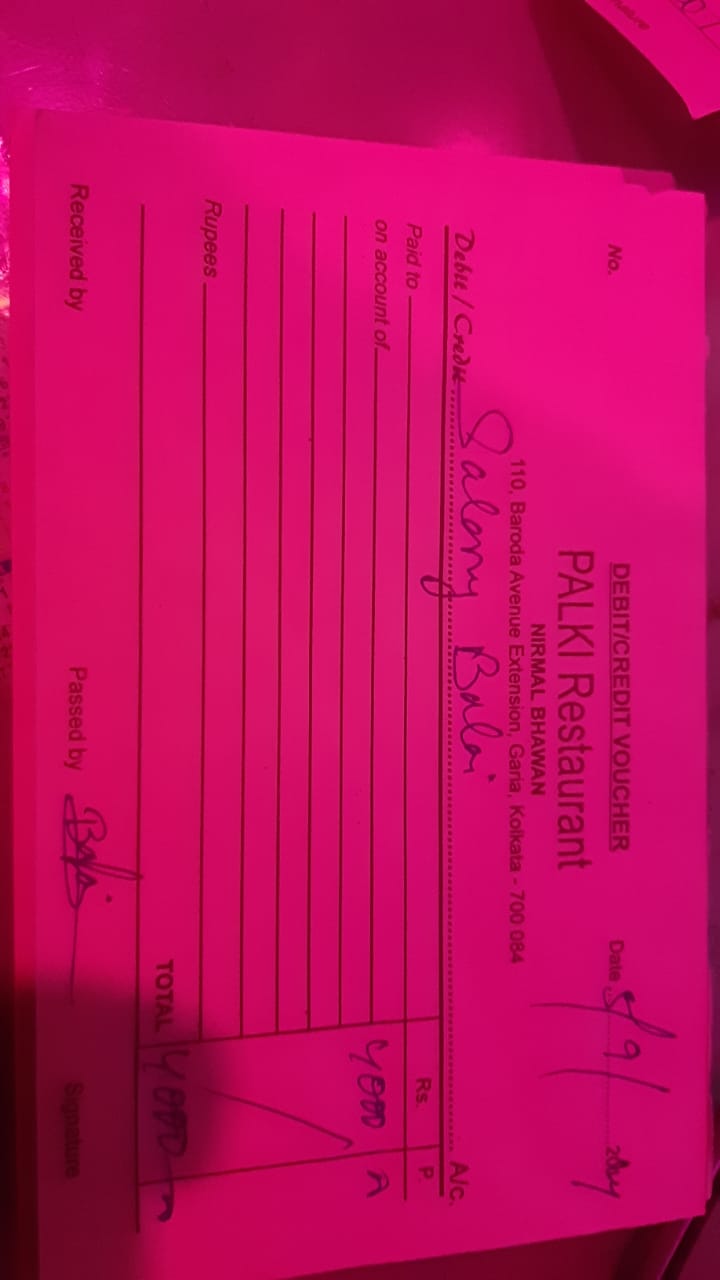 No.
DEBIT/CREDIT VOUCHER
Date 8/9/2024
PALKI Restaurant
NIRMAL BHAWAN
110, Baroda Avenue Extension, Garia, Kolkata - 700 084
Debit / Credit Salary Balai A/c.
Paid to Rs. P.
on account of 4000
Rupees
TOTAL 4000
Received by Passed by Balai Signature